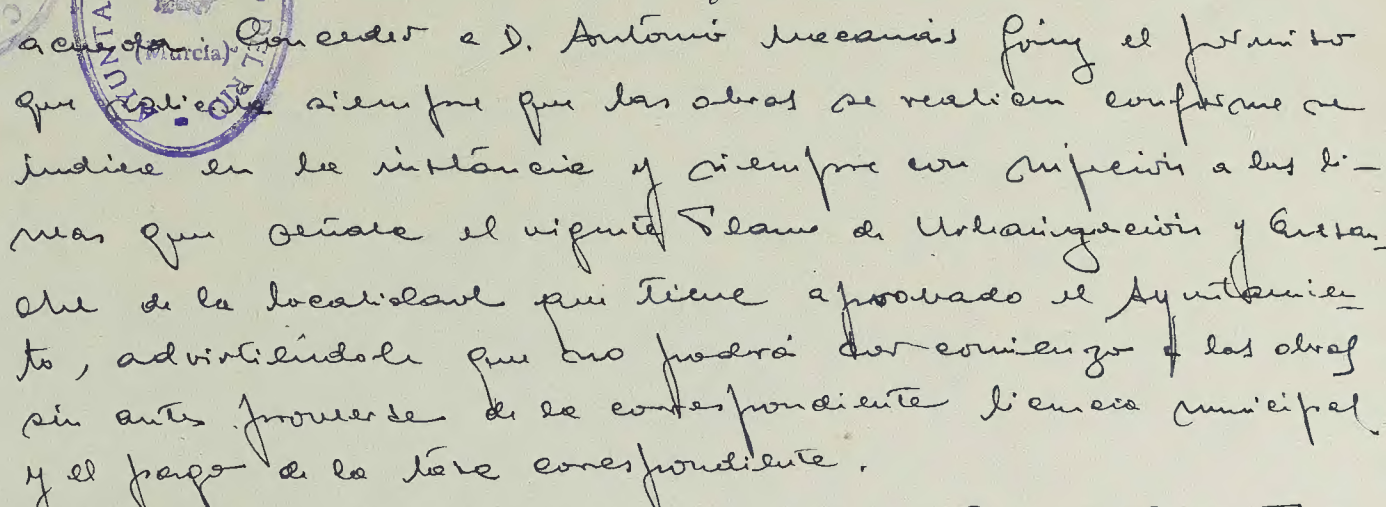 acuerda: Conceder a D. António Mecanás Going el permiso
que solicita siempre que las obras se realicen conforme se
indica en la instáncia y siempre con sujeción a las li-
neas que señala el vigente Plano de Urbanización y Ensan-
che de la localidad que tiene aprobado el Ayuntamien-
to, advirtiéndole que no podrá dar comienzo a las obras
sin antes proveerse de la correspondiente licencia municipal
y el pago de la tása correspondiente.
AYUNTA
(Murcia)
DEL RIO